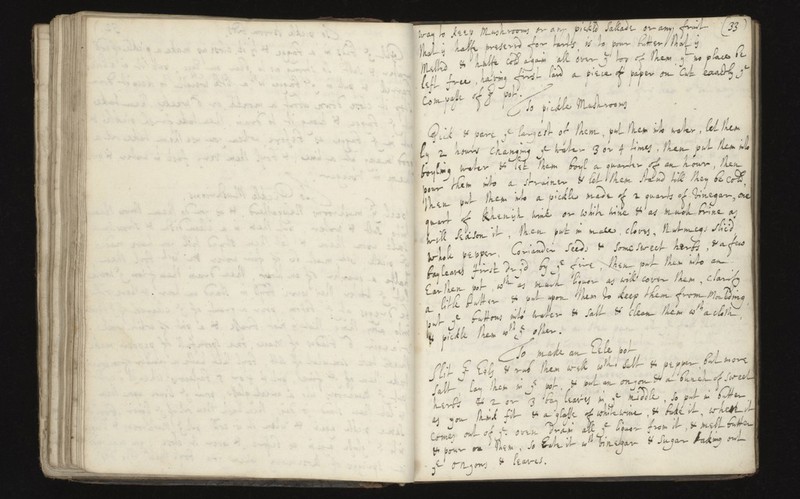 (33)
way to keep Mushrooms or any pickld sallade or any fruit
that is halfe preserved for tarts, is to pour butter that is
Melted & halfe cold again all over ye top of them, yt no place be
left free, having first laid a piece of paper on cut exactly ye
Compasse of ye pot.
To pickle Mushrooms
Pick & pare ye largest of them, put them into water, let them
ly 2 hours changing ye water 3 or 4 times, then put them into
boyling water & let them boil a quarter of an hour, then
pour them into a strainer & let them stand till they be cold,
Then put them into a pickle made of 2 quarts of Vinegar, one
quart of Rhenish wine or white wine & as much brine as
will season it, then put in mace, cloves, Nutmegs slic'd
whole pepper, Coriander seeds & some sweet herbs, & a few
bayleaves first dry'd by ye fire, then put them into an
Earthen pot, wth as much liquor as will cover them, clarify
a little butter & put upon them to keep them from Moulding
put ye buttons into water & salt & clean them wth a cloth,
& pickle them wth ye other.
To make an Eele pot
Slit ye Eels & rub them well wth salt & pepper but more
salt lay them in ye pot, & put an onyon & a bunch of sweet
herbs & 2 or 3 bay leaves in ye middle, so put in butter
as you think fit & a glasse of white wine, & bake it, when it
comes out of ye oven drain all ye liquor from it, & melt butter
& pour on them, so Eate it wth Vinegar & sugar taking out
ye onyons & leaves.